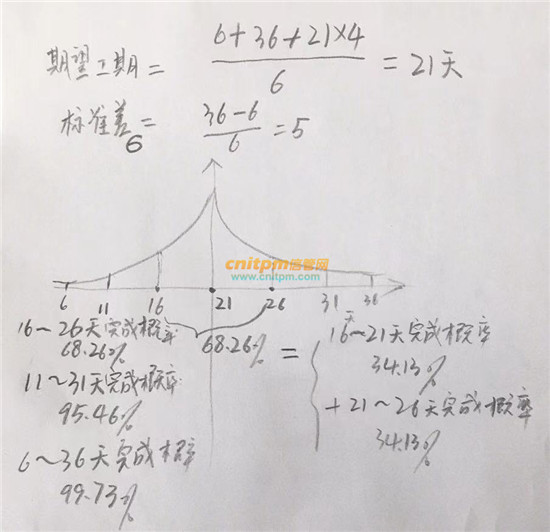 期望工期 = (6+36+21×4)/6 = 21天
标准差 = (36-6)/6 = 5
6
cnitpm信管网
www.cnitpm.com
6 11 16 21 26 31 36
天
16～26天完成概率
68.26%
68.26% =
16～21天完成概率
34.13%
11～31天完成概率
95.46%
+21～26天完成概率
34.13%
6～36天完成概率
99.73%